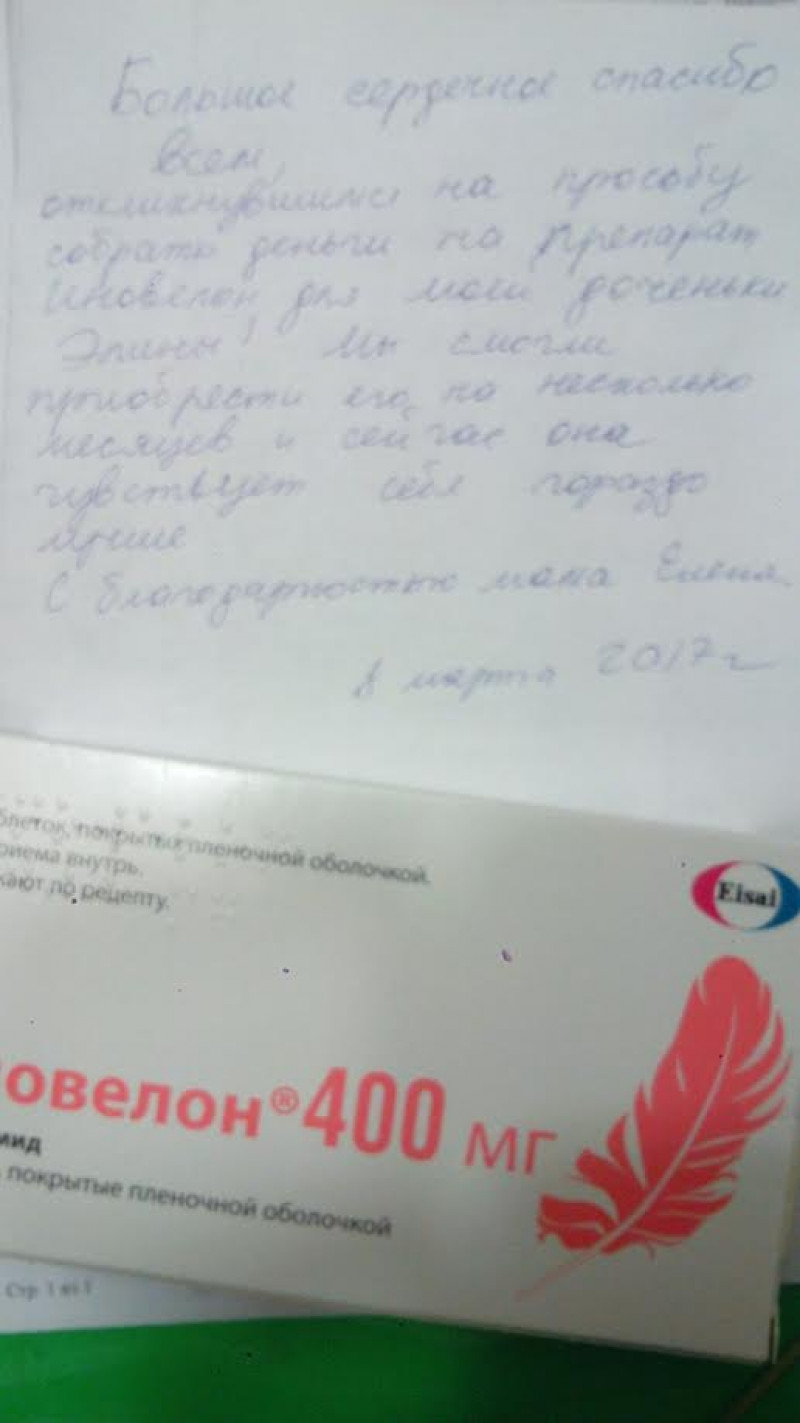 Большое сердечное спасибо
всем,
откликнувшимся на просьбу
собрать деньги на препарат
Иновелон для моей доченьки
Элины! Мы смогли
приобрести его на несколько
месяцев и сейчас она
чувствует себя гораздо
лучше
С благодарностью мама Елена
8 марта 2017 г
блеток, покрытых пленочной оболочкой.
риема внутрь.
кают по рецепту.
Eisai
овелон® 400 мг
мид
, покрытые пленочной оболочкой
Стр. 1 из 1